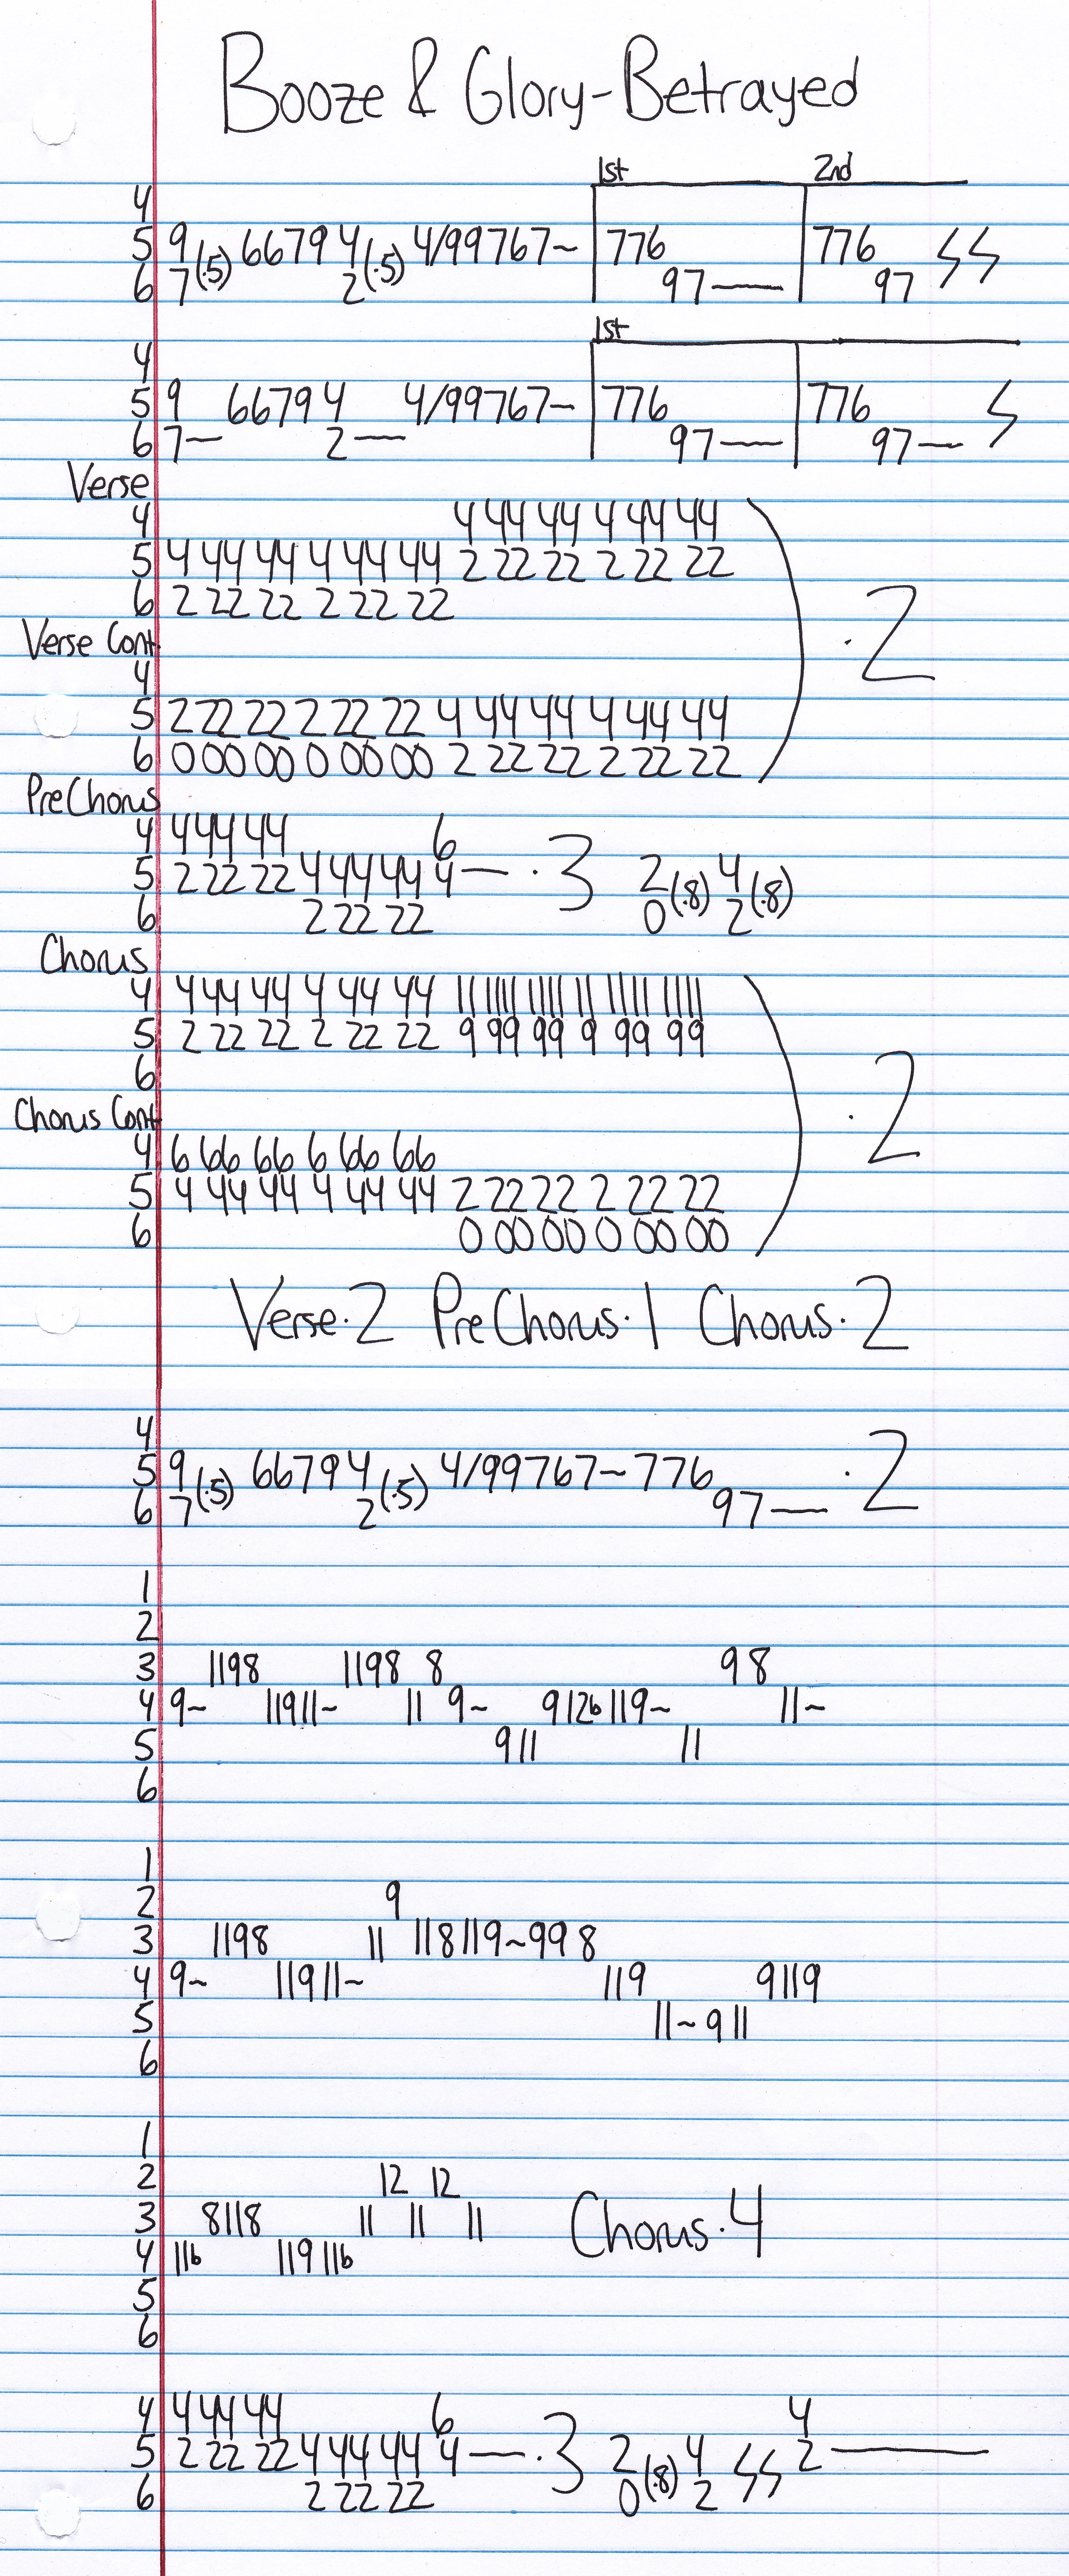 Booze & Glory-Betrayed
1st 2nd
4
5 9 (.5) 66794 (.5) 4/99767~ 776 776 ϟϟ
6 7 2 97— 97
1st
4
5 9 66794 4/99767- 776 776 ϟ
6 7— 2— 97— 97—
Verse
4 4 44 44 4 44 44
5 4 44 44 4 44 44 2 22 22 2 22 22
6 2 22 22 2 22 22
·2
Verse Cont.
4
5 2 22 22 2 22 22 4 44 44 4 44 44
6 0 00 00 0 00 00 2 22 22 2 22 22
PreChorus
4 4 44 44 6
5 2 22 22 4 44 44 4— ·3 2 (.8) 4 (.8)
6 2 22 22 0 2
Chorus
4 4 44 44 4 44 44 11 1111 1111 11 1111 1111
5 2 22 22 2 22 22 9 99 99 9 99 99
6
·2
Chorus Cont.
4 6 66 66 6 66 66
5 4 44 44 4 44 44 2 22 22 2 22 22
6 0 00 00 0 00 00
Verse·2 PreChorus·1 Chorus·2
4
5 9 (.5) 66794 (.5) 4/99767~776 ·2
6 7 2 97—
1
2
3 1198 1198 8 98
4 9~ 11911~ 11 9~ 912b119~ 11~
5 911 11
6
1
2 9
3 1198 11 118119~998
4 9~ 11911~ 119 9119
5 11~911
6
1
2 12 12
3 8118 11 11 11 Chorus·4
4 11b 11911b
5
6
4 4 44 44 6 4
5 2 22 22 4 44 44 4— ·3 2 (.8) 4 ϟϟ 2—
6 2 22 22 0 2